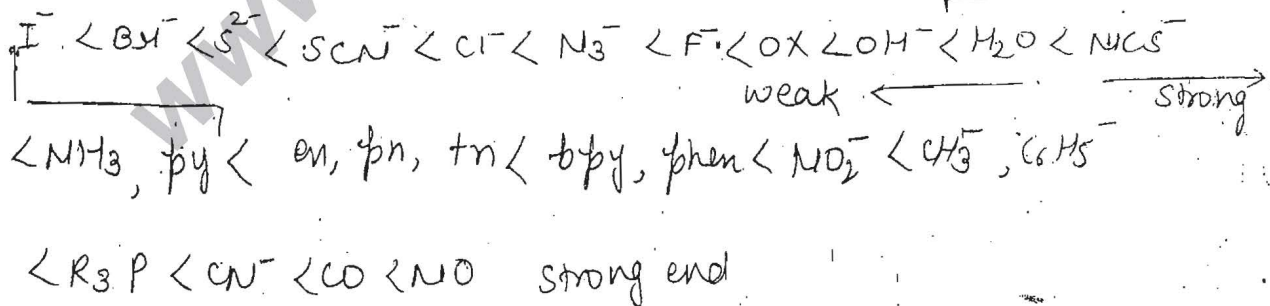 I⁻ < Br⁻ < S²⁻ < SCN⁻ < Cl⁻ < N₃⁻ < F⁻ < OX < OH⁻ < H₂O < NCS⁻
weak strong
< NH₃, py < en, pn, tn < bpy, phen < NO₂⁻ < CH₃⁻, C₆H₅⁻
< R₃P < CN⁻ < CO < NO strong end